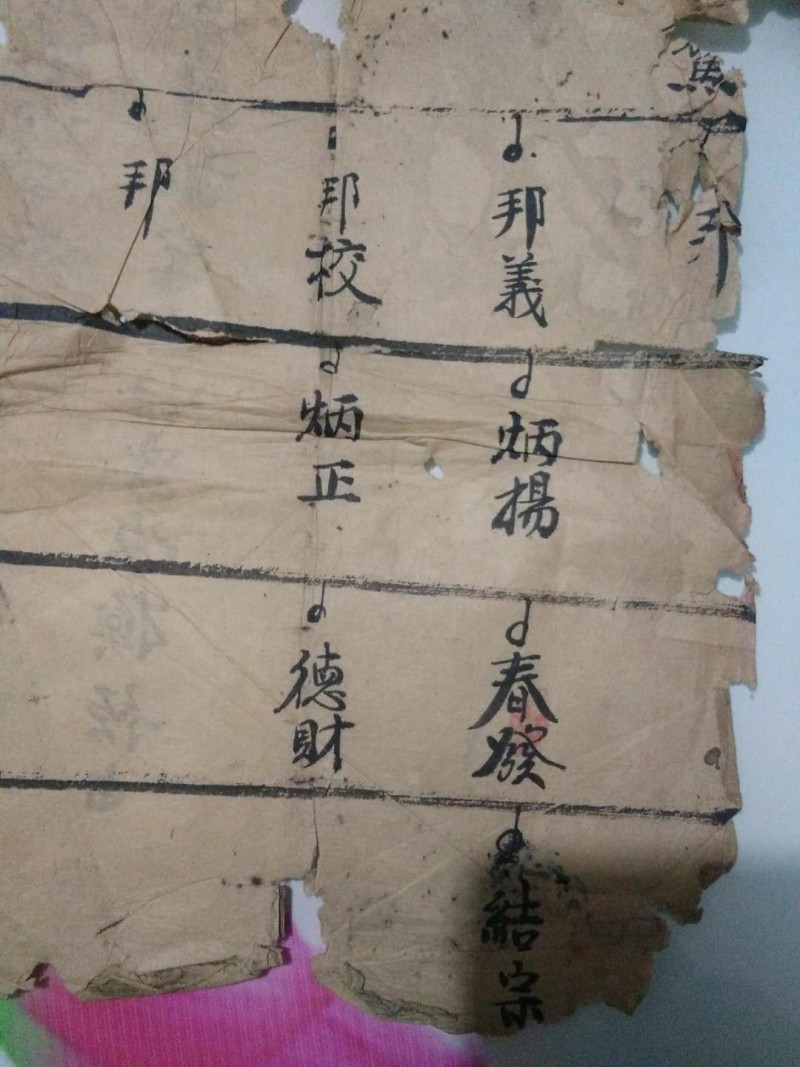 邦義
炳揚
春發
結宗
邦校
炳正
德財
邦